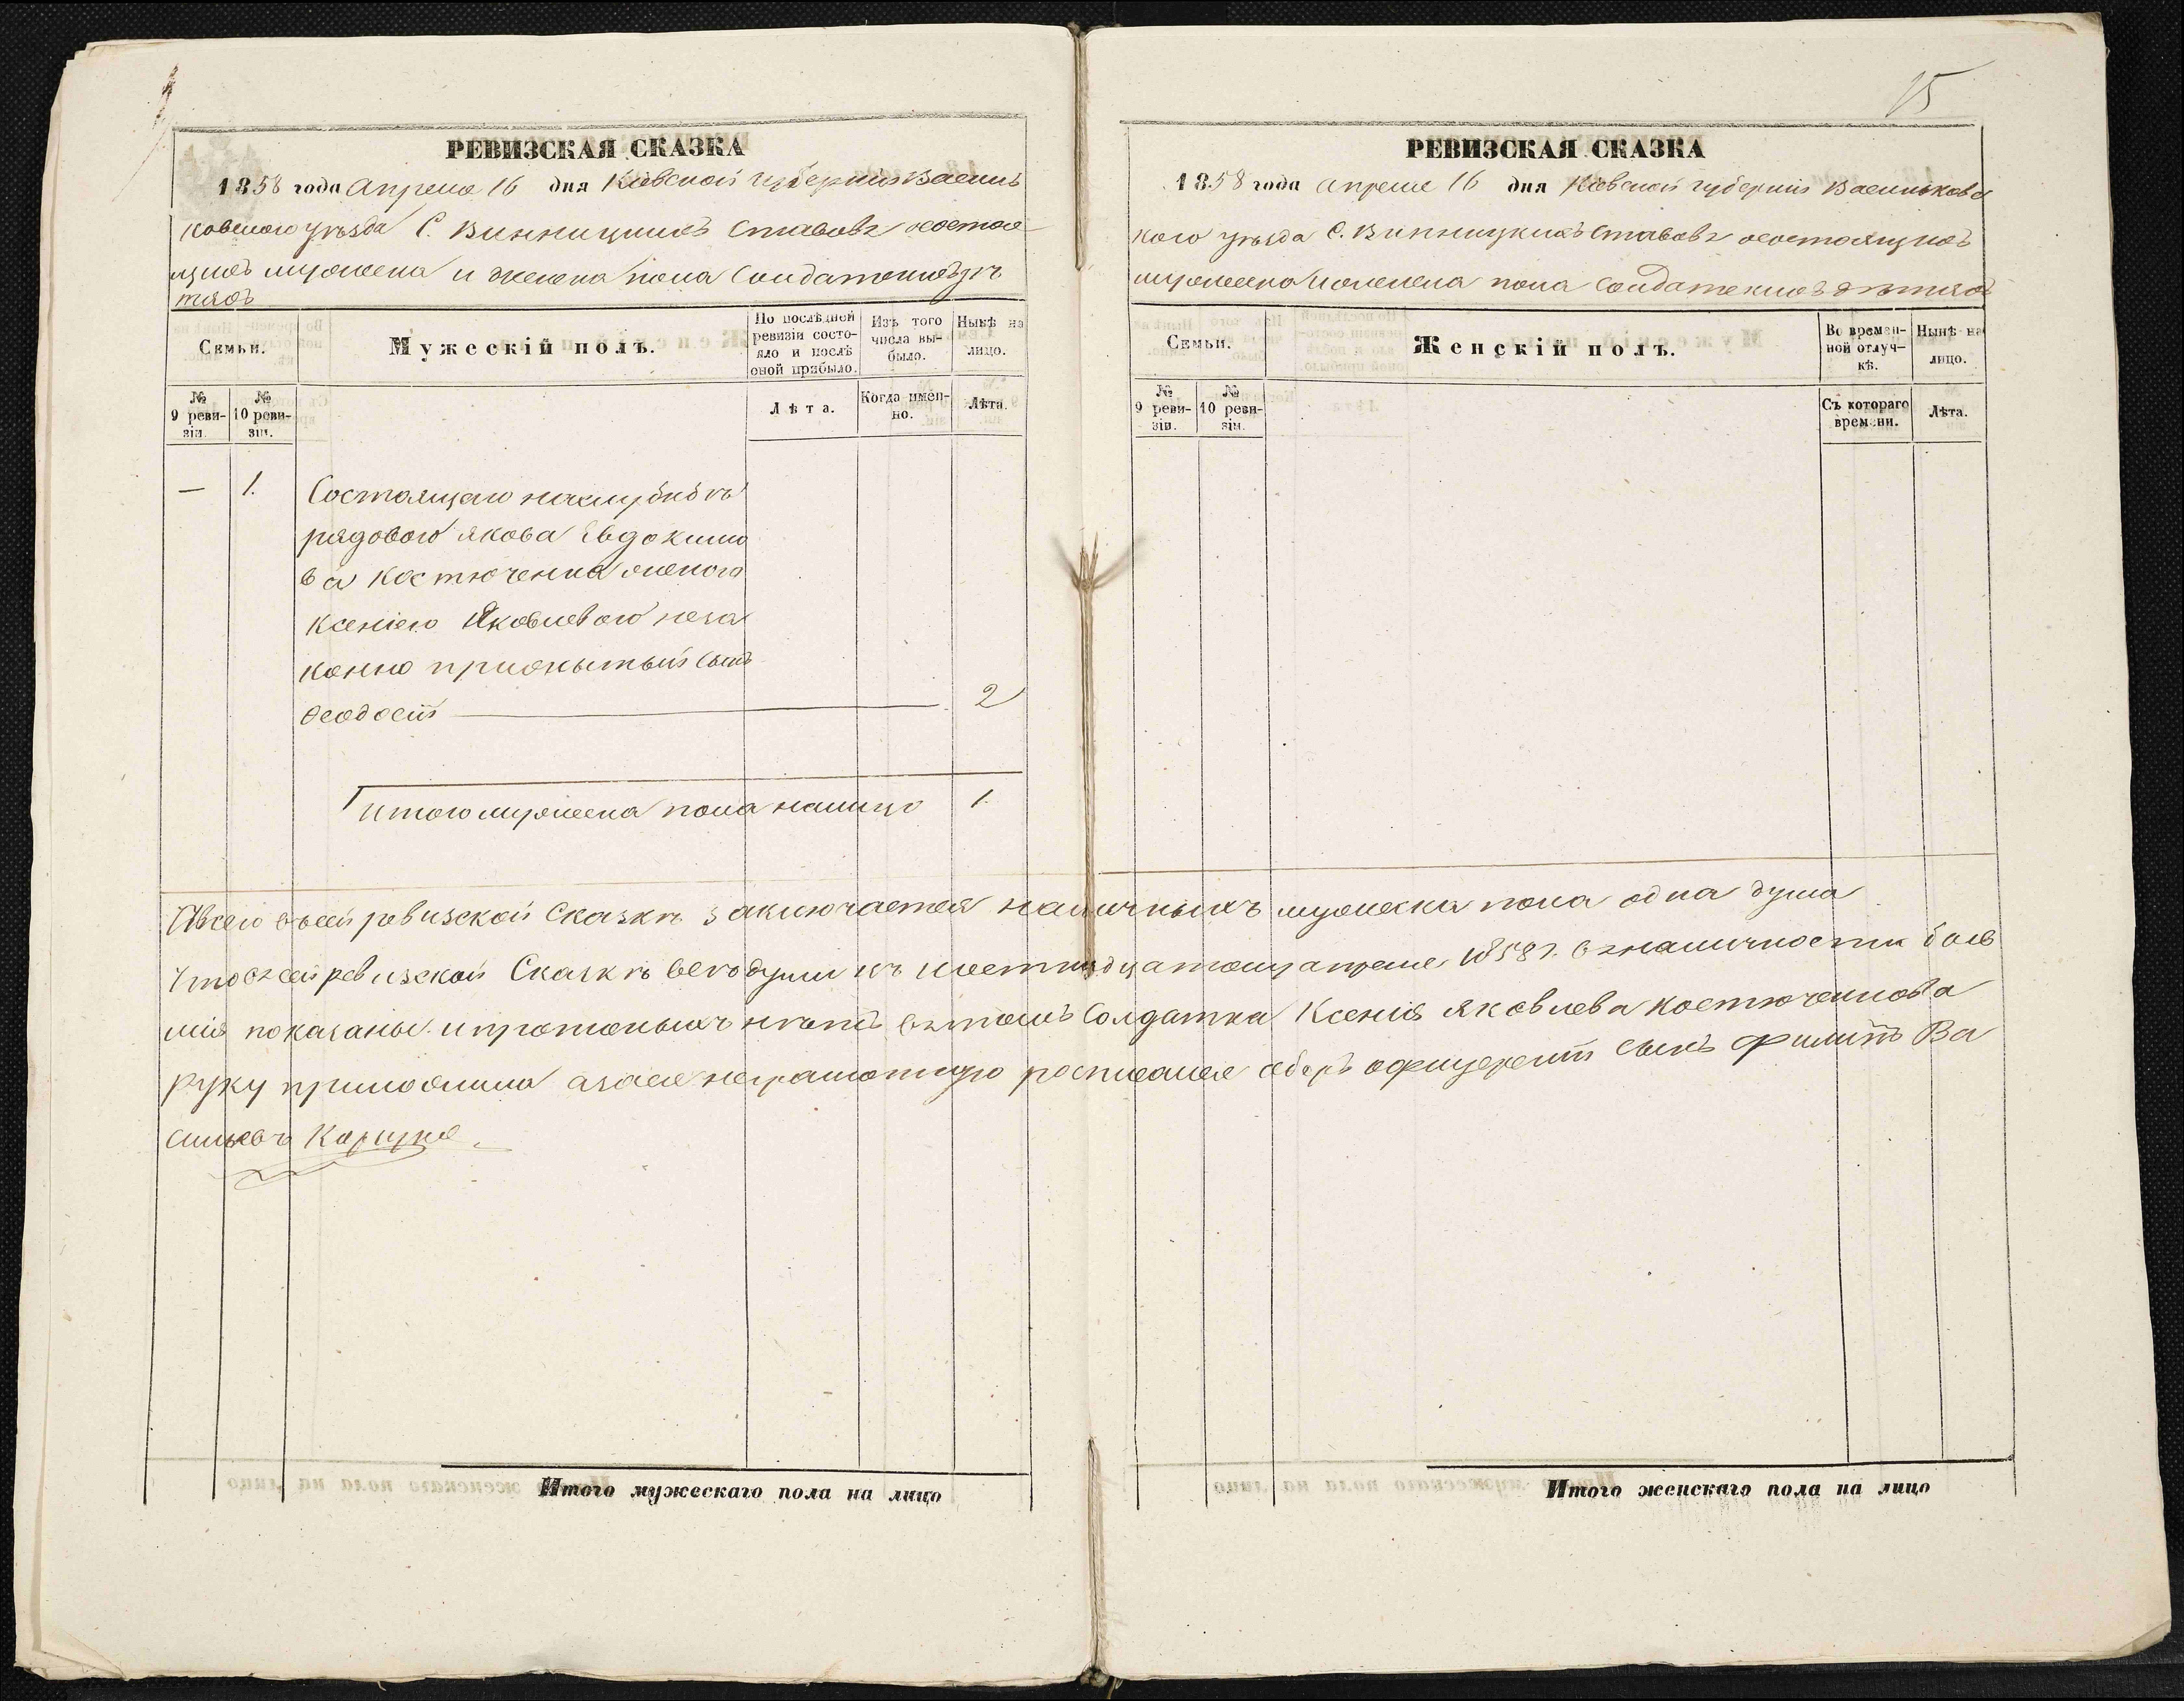 15
РЕВИЗСКАЯ СКАЗКА
1858 года Апреля 16 дня Кіевской губерніи Василь
ковского уезда С. Винницкихъ Ставовъ состоя
щихъ мужеска и женска пола Солдатскихъ де
тяхъ
Семьи.
Мужескій полъ.
По послѣдней ревизіи состояло и послѣ оной прибыло.
Изъ того числа выбыло.
Нынѣ на лицо.
№ 9 ревизіи.
№ 10 ревизіи.
Лѣта.
Когда именно.
Лѣта.
— 1. Состоящаго на службѣ
рядового Якова Евдокимо
ва Костюченка женою
Ксеніею Яковлевою неза
конно прижытый сынъ
Ѳеодосій — 2
Итого мужеска пола налицо 1.
РЕВИЗСКАЯ СКАЗКА
1858 года Апреля 16 дня Кіевской губерніи Васильковс
кого уѣзда С. Винницкихъ Ставовъ состоящихъ
мужеска и женска пола Солдатскихъ дѣтяхъ
Семьи.
Женскій полъ.
Во временной отлучкѣ.
Нынѣ на лицо.
№ 9 ревизіи.
№ 10 ревизіи.
Съ котораго времени.
Лѣта.
Авсего въсей ревизской Сказкѣ заключается наличныхъ мужеска пола одна душа
Что въсей ревизской Сказкѣ все души къ шестнадцатому апреля 1858 г. въ наличности быв
шія показаны и прописныхъ нѣтъ въ томъ Солдатка Ксенія Яковлева Костюченкова
руку приложила азаее неграмотную росписался оберъ офицерскій сынъ Филипъ Ва
сильевъ
Итого мужескаго пола на лицо
Итого женскаго пола на лицо